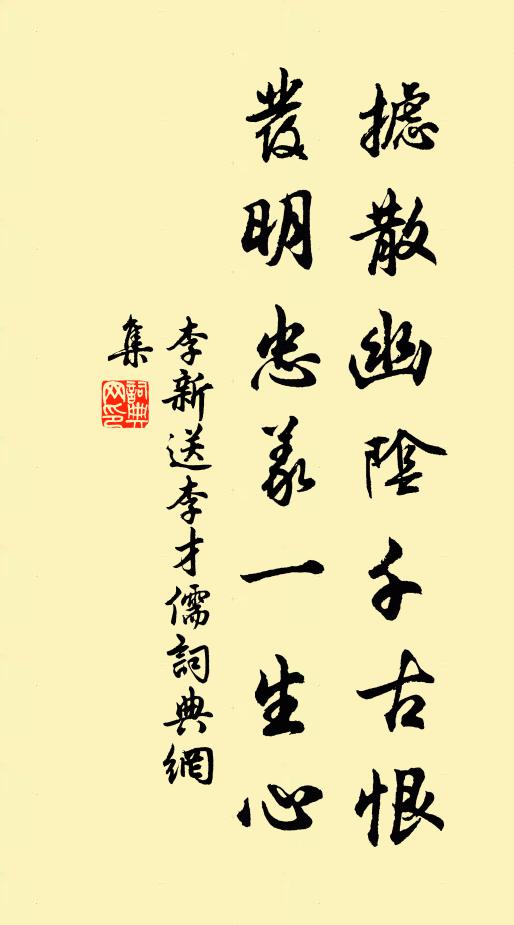 攄散幽陰千古恨
發明忠義一生心
李新送李才儒詞典網
集
詞典網印